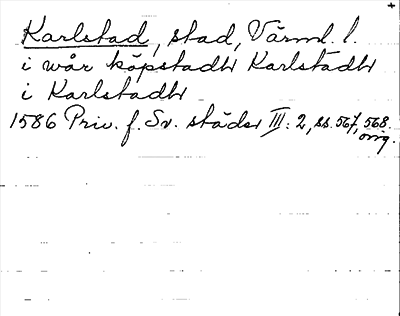 Karlstad, stad, Värml. l.
i wår köpstadh Karlstadh
i Karlstadh
1586 Priv. f. Sv. städer III: 2, ss. 567, 568.
orig.